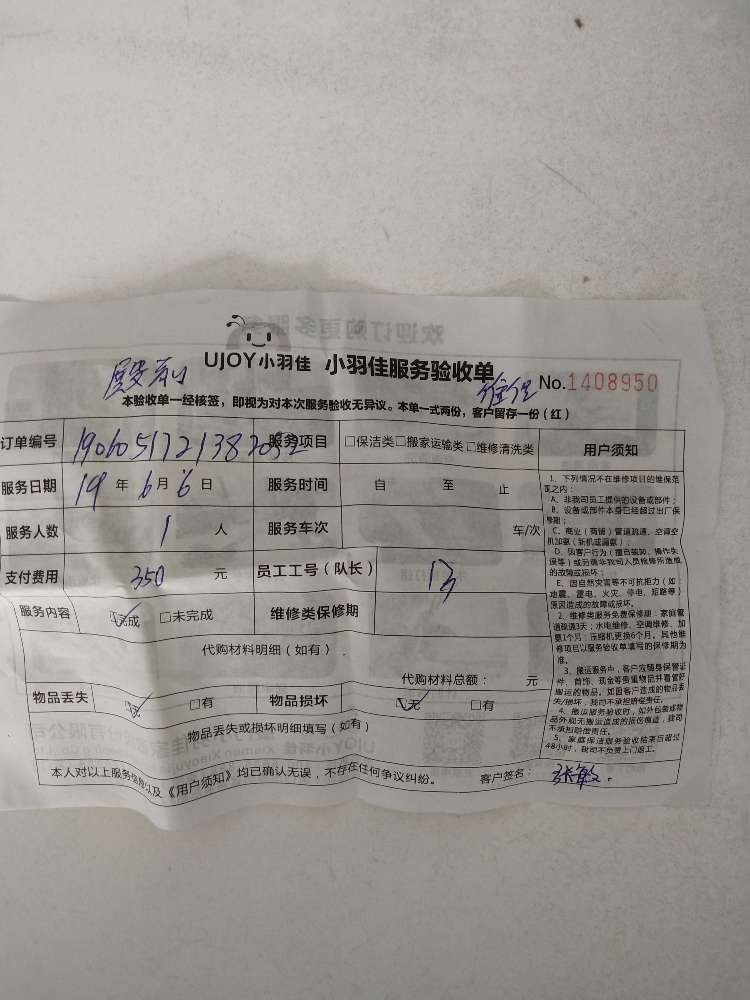 UJOY小羽佳 小羽佳服务验收单
No.1408950
本验收单一经核签，即视为对本次服务验收无异议。本单一式两份，客户留存一份（红）
订单编号 服务项目 □保洁类□搬家运输类□维修清洗类 用户须知
服务日期 19 年 6 月 6 日 服务时间 自 至 止
服务人数 1 人 服务车次 车/次
支付费用 350 元 员工工号（队长） 13
服务内容 ☑完成 □未完成 维修类保修期
代购材料明细（如有）
代购材料总额： 元
物品丢失 ☑无 □有 物品损坏 ☑无 □有
物品丢失或损坏明细填写（如有）
本人对以上服务信息以及《用户须知》均已确认无误，不存在任何争议纠纷。 客户签名： 张敏
1、下列情况不在维修项目的维保范
围之内：
A、非我司员工提供的设备或部件；
B、设备或部件本身已经超过出厂保
修期；
C、商业（商铺）管道疏通、空调空
机加氟（新机或漏氟）；
D、因客户行为（擅自装卸、操作失
误等）或另请非我司人员检修所造成
的故障或损坏；
E、因自然灾害等不可抗拒力（如：
地震、雷电、火灾、停电、短路等）
原因造成的故障或损坏。
2、维修类服务免费保修期：家庭管
道疏通3天；水电维修、空调维修、加
氟1个月；压缩机更换6个月。其他维
修项目以服务验收单填写的保修期为
准。
3、搬运服务中，客户应随身保管证
件、首饰、现金等贵重物品并看管好
搬运的物品。如因客户造成的物品丢
失/损坏，我司不承担赔偿责任。
4、搬运服务验收时，如外包装或物
品外观无搬运造成的损伤痕迹，我司
不承担赔偿责任。
5、家庭保洁服务验收结束后超过
48小时，我司不负责上门返工。